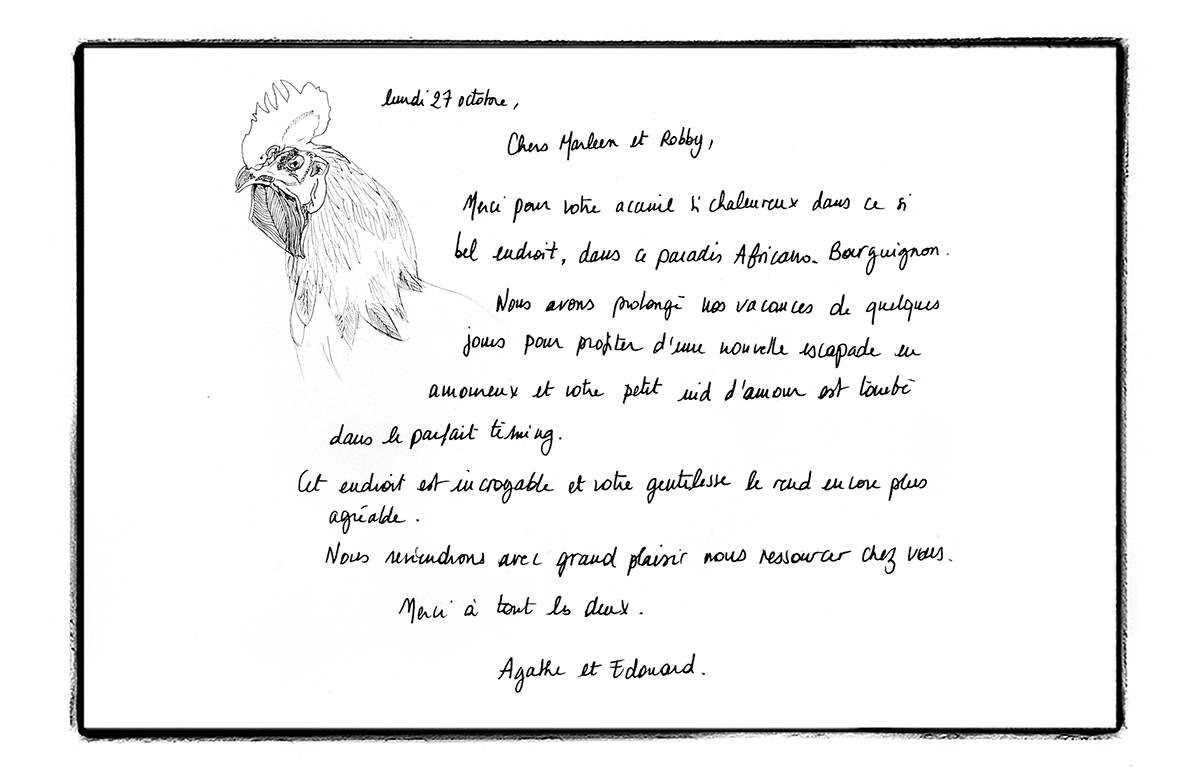 lundi 27 octobre,
Chers Marleen et Robby,
Merci pour votre accueil si chaleureux dans ce si
bel endroit, dans ce paradis Africano-Bourguignon.
Nous avons prolongé nos vacances de quelques
jours pour profiter d'une nouvelle escapade en
amoureux et votre petit nid d'amour est tombé
dans le parfait timing.
Cet endroit est incroyable et votre gentillesse le rend encore plus
agréable.
Nous reviendrons avec grand plaisir nous ressourcer chez vous.
Merci à tout les deux.
Agathe et Edouard.